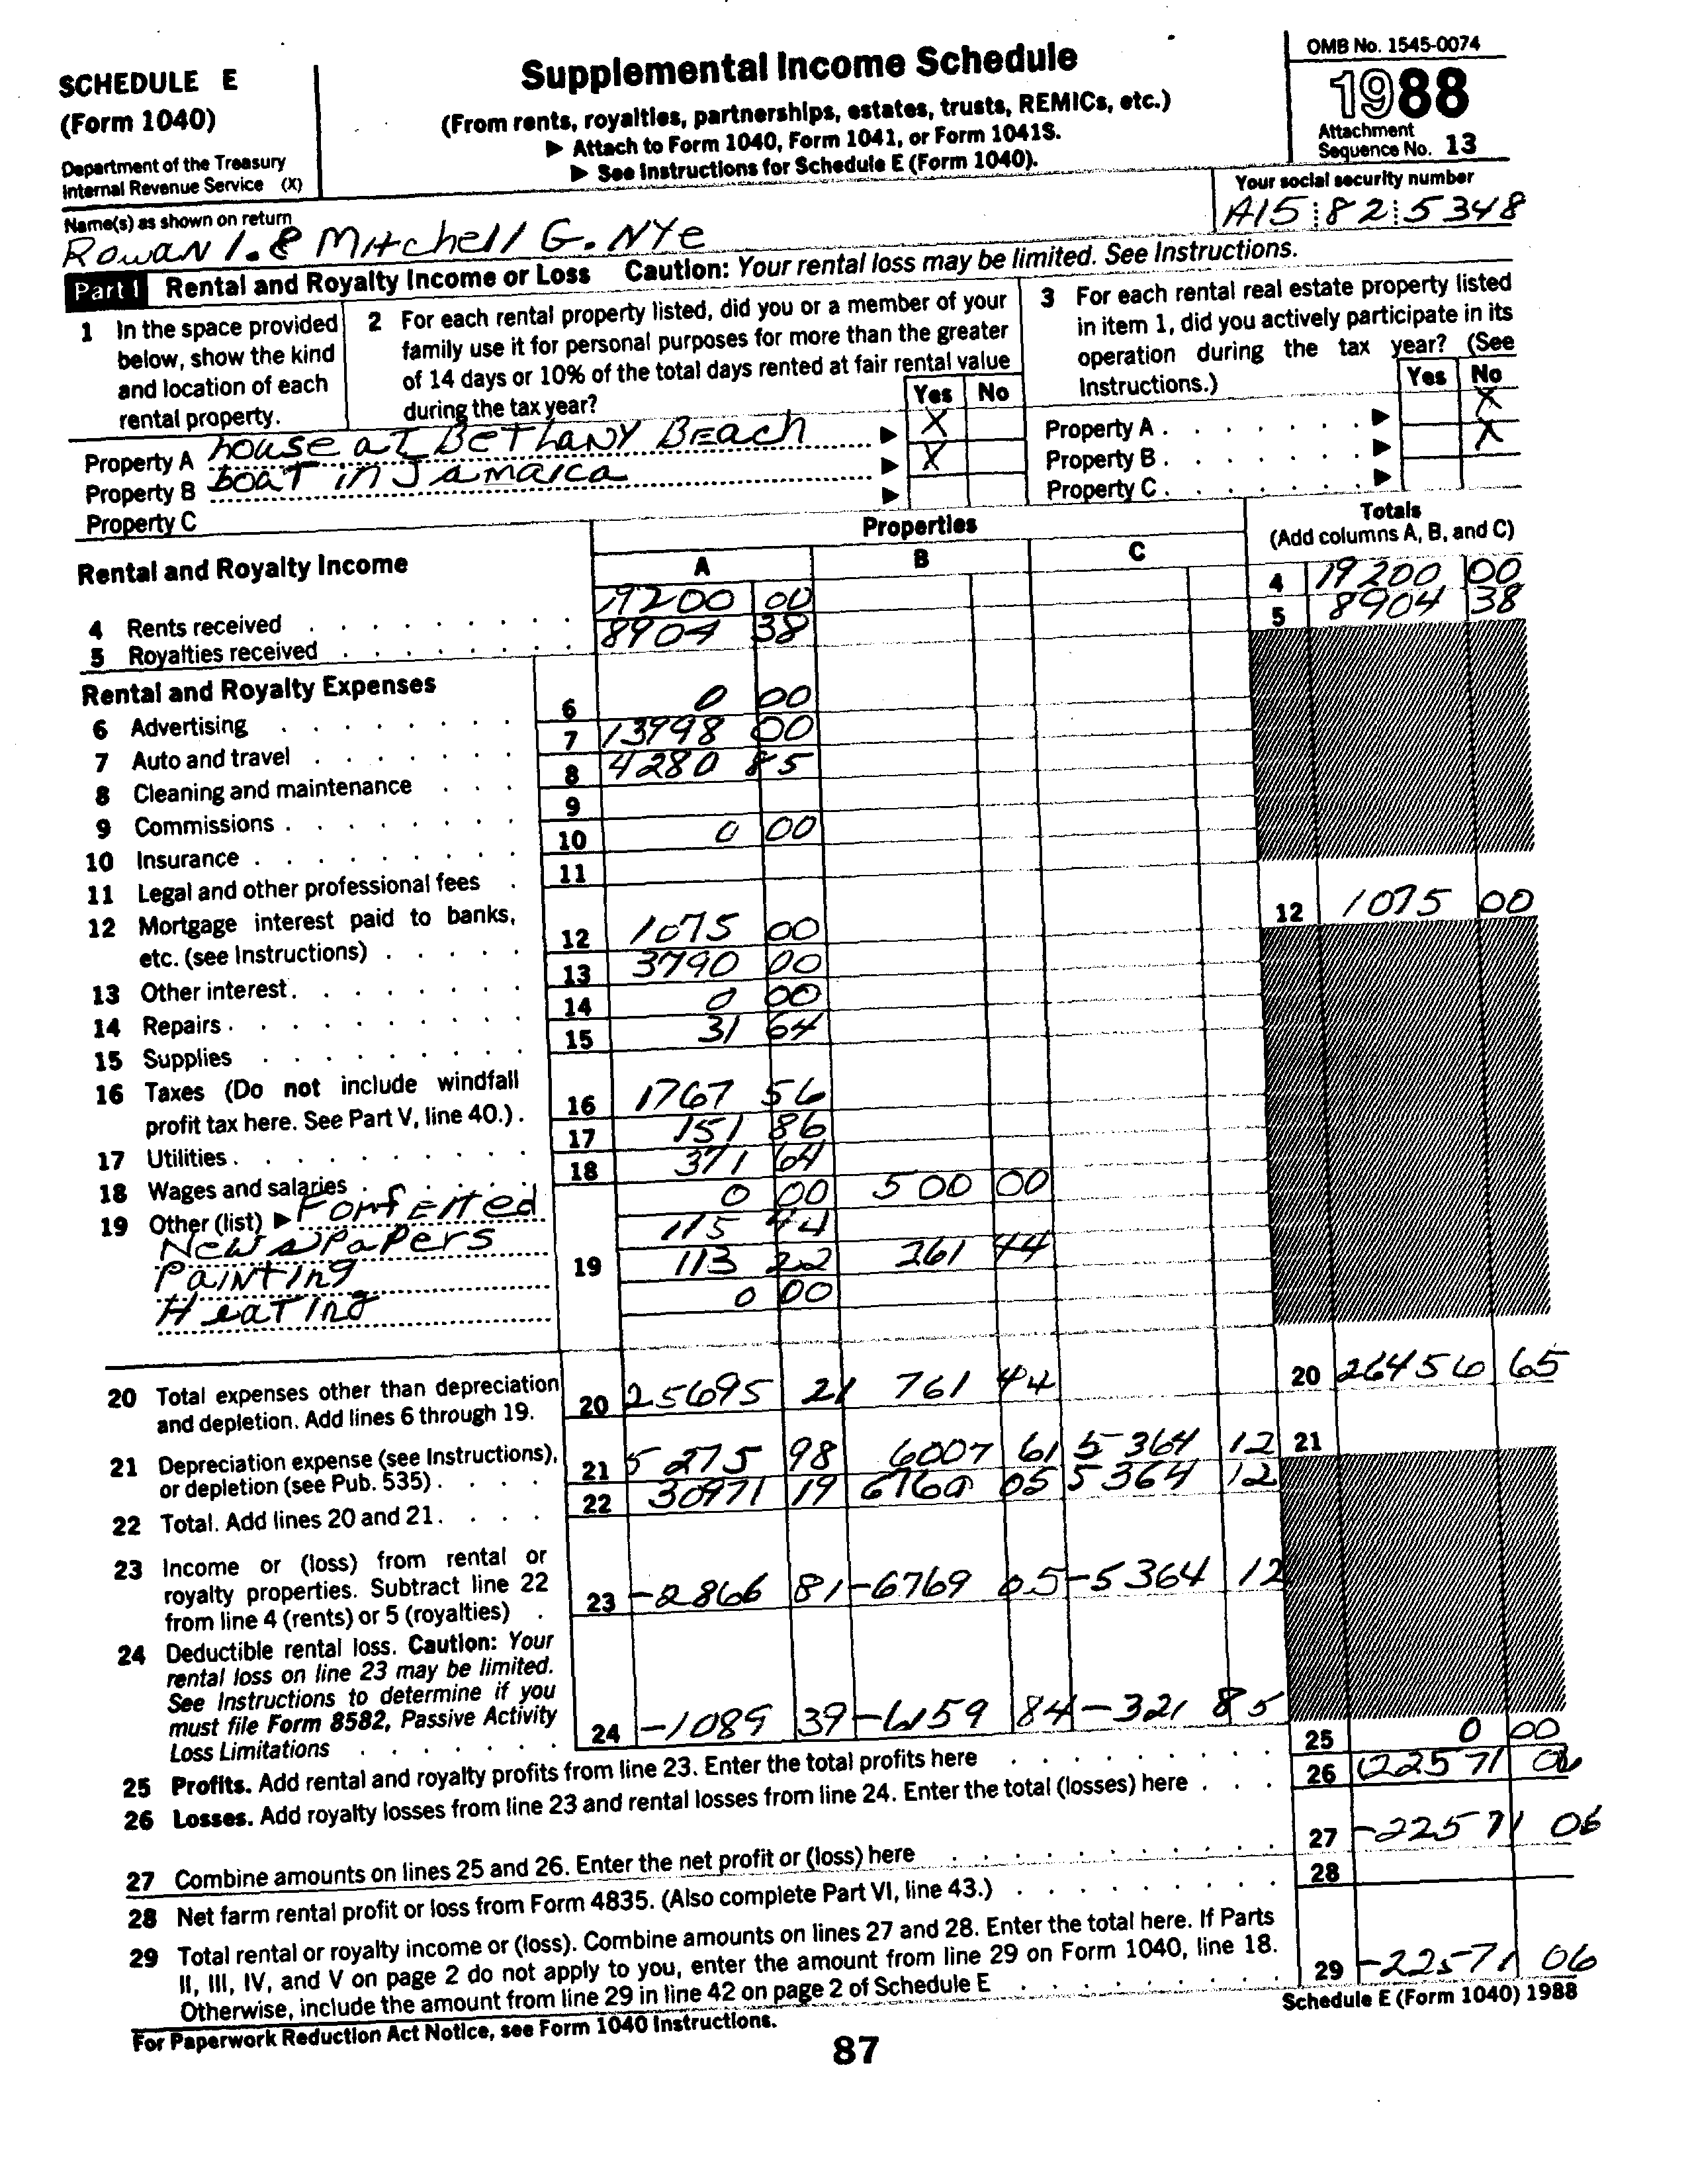 SCHEDULE E
(Form 1040)
Department of the Treasury
Internal Revenue Service (X)
Supplemental Income Schedule
(From rents, royalties, partnerships, estates, trusts, REMICs, etc.)
▶ Attach to Form 1040, Form 1041, or Form 1041S.
▶ See Instructions for Schedule E (Form 1040).
OMB No. 1545-0074
1988
Attachment
Sequence No. 13
Name(s) as shown on return
Rowan I. & Mitchell G. Nye
Your social security number
A15 82 5348
Part I Rental and Royalty Income or Loss Caution: Your rental loss may be limited. See Instructions.
1 In the space provided
below, show the kind
and location of each
rental property.
2 For each rental property listed, did you or a member of your
family use it for personal purposes for more than the greater
of 14 days or 10% of the total days rented at fair rental value
during the tax year?
Yes No
3 For each rental real estate property listed
in item 1, did you actively participate in its
operation during the tax year? (See
Instructions.)
Yes No
Property A house at Bethany Beach ▶ X
Property B boat in Jamaica ▶ X
Property C ▶
Property A . . . . . . . ▶ X
Property B . . . . . . . ▶ X
Property C . . . . . . . ▶
Rental and Royalty Income
Properties
A B C
Totals
(Add columns A, B, and C)
4 Rents received 19200 00 4 19200 00
5 Royalties received 8904 38 5 8904 38
Rental and Royalty Expenses
6 Advertising 6 0 00
7 Auto and travel 7 13998 00
8 Cleaning and maintenance 8 4280 85
9 Commissions 9
10 Insurance 10 0 00
11 Legal and other professional fees 11
12 Mortgage interest paid to banks,
etc. (see Instructions) 12 1075 00 12 1075 00
13 Other interest 13 3790 00
14 Repairs 14 0 00
15 Supplies 15 31 64
16 Taxes (Do not include windfall
profit tax here. See Part V, line 40.) 16 1767 56
17 Utilities 17 151 86
18 Wages and salaries 18 371 64
19 Other (list) ▶ Forfeited 0 00 500 00
Newspapers 115 44
Painting 19 113 22 261 44
Heating 0 00
20 Total expenses other than depreciation
and depletion. Add lines 6 through 19. 20 25695 21 761 44 20 26456 65
21 Depreciation expense (see Instructions),
or depletion (see Pub. 535) 21 5275 98 6007 61 5364 12 21
22 Total. Add lines 20 and 21. 22 30971 19 6769 05 5364 12
23 Income or (loss) from rental or
royalty properties. Subtract line 22
from line 4 (rents) or 5 (royalties) 23 -2866 81 -6769 05 -5364 12
24 Deductible rental loss. Caution: Your
rental loss on line 23 may be limited.
See Instructions to determine if you
must file Form 8582, Passive Activity
Loss Limitations 24 -1089 39 -6159 84 -321 85
25 Profits. Add rental and royalty profits from line 23. Enter the total profits here 25 0 00
26 Losses. Add royalty losses from line 23 and rental losses from line 24. Enter the total (losses) here 26 (22571 06
27 Combine amounts on lines 25 and 26. Enter the net profit or (loss) here 27 -22571 06
28 Net farm rental profit or loss from Form 4835. (Also complete Part VI, line 43.) 28
29 Total rental or royalty income or (loss). Combine amounts on lines 27 and 28. Enter the total here. If Parts
II, III, IV, and V on page 2 do not apply to you, enter the amount from line 29 on Form 1040, line 18.
Otherwise, include the amount from line 29 in line 42 on page 2 of Schedule E 29 -22571 06
For Paperwork Reduction Act Notice, see Form 1040 Instructions.
Schedule E (Form 1040) 1988
87